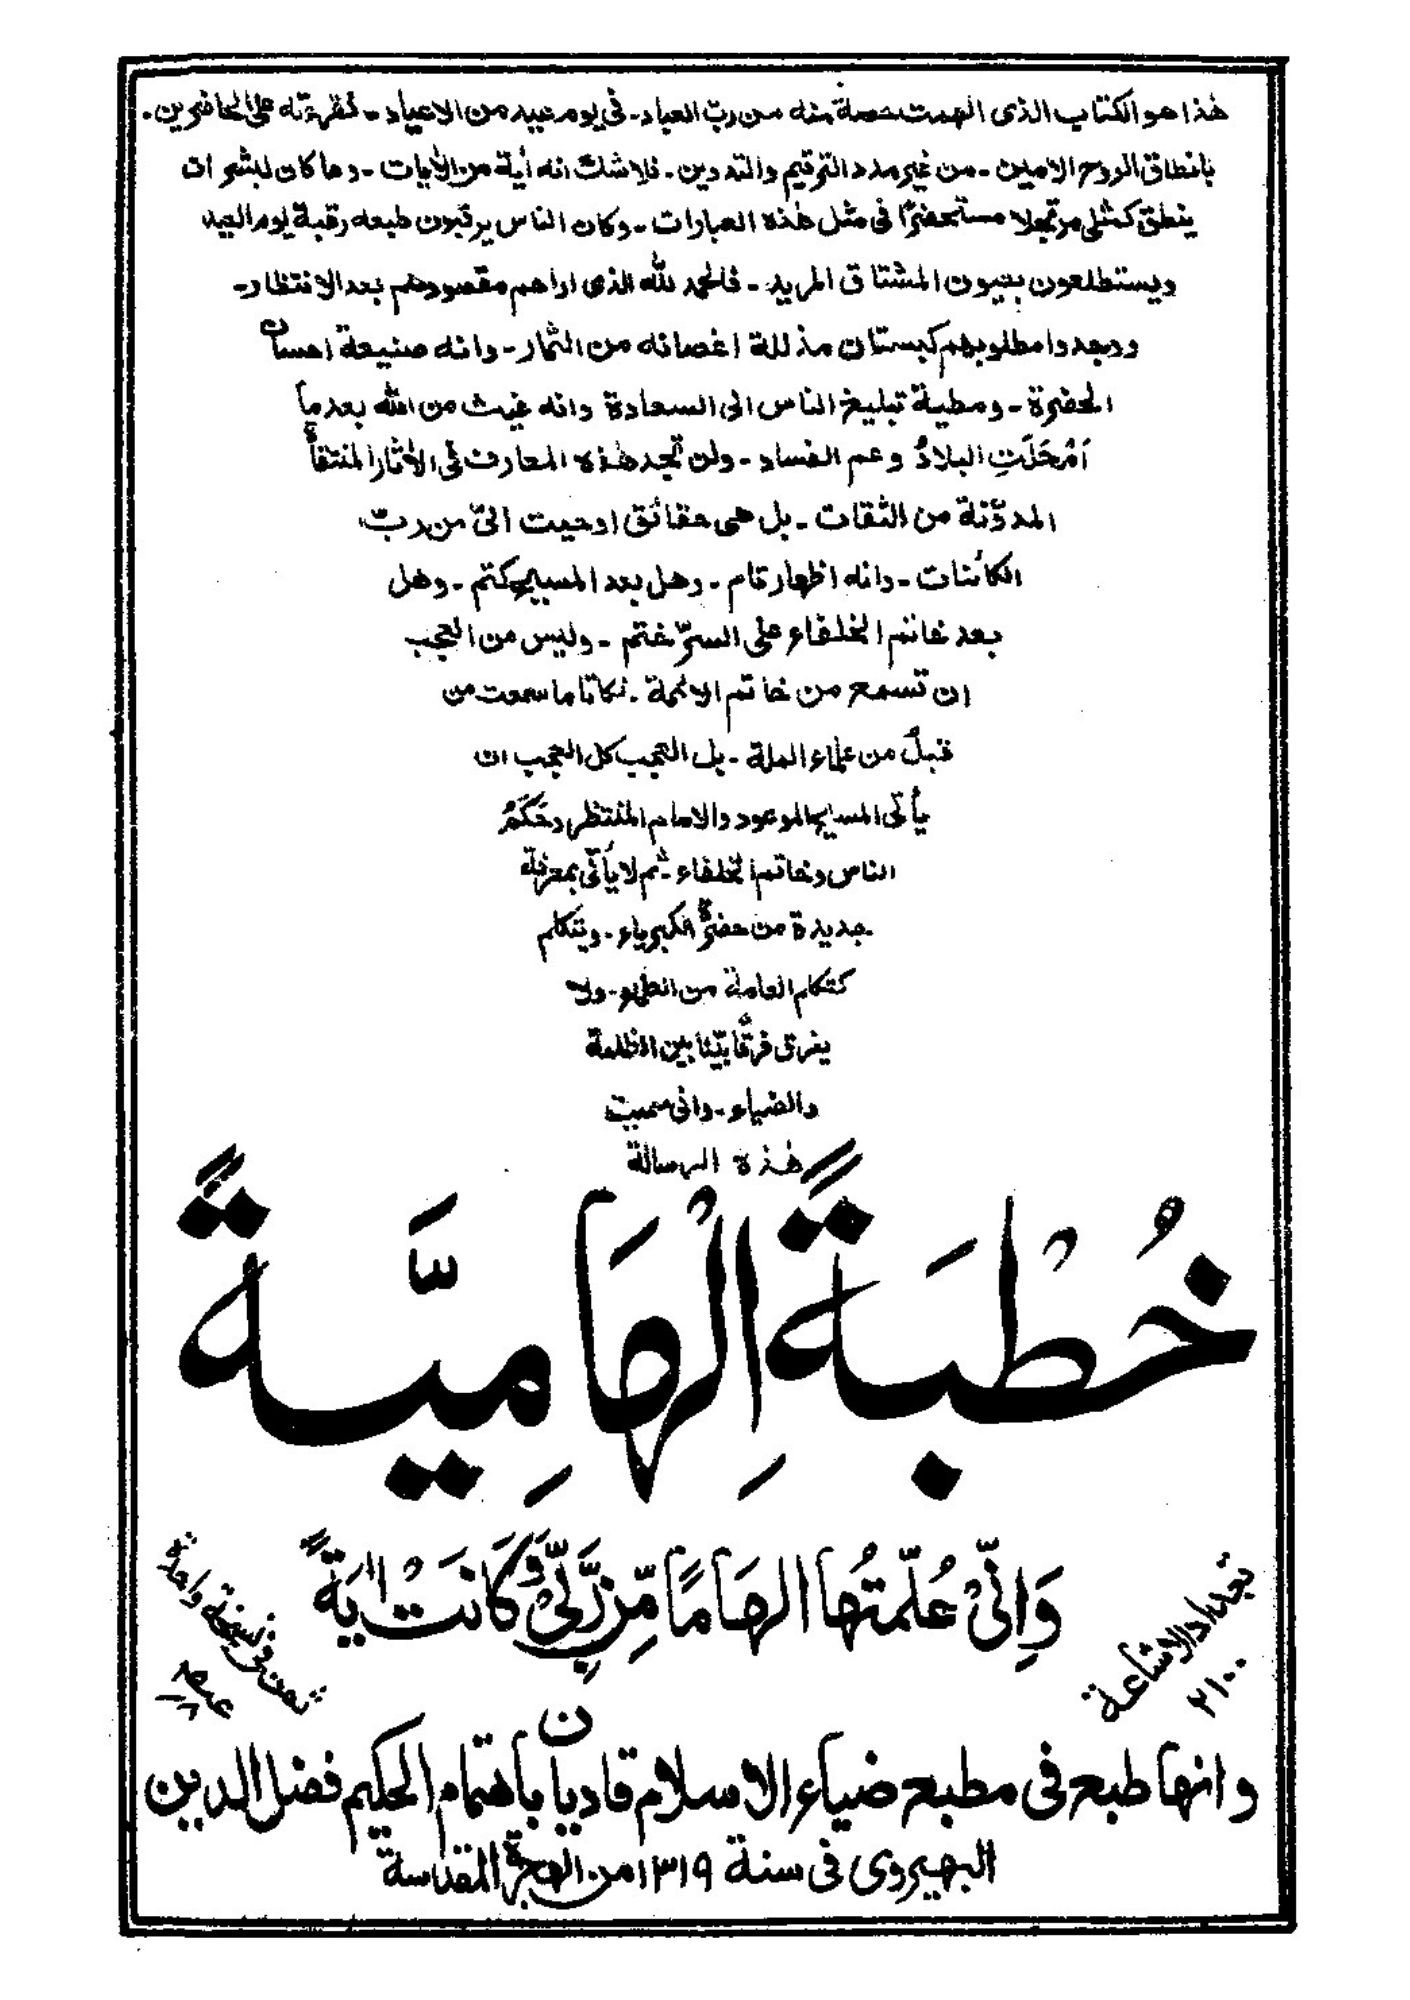 هٰذا هو الكتاب الذى الهمت حصة منه من ربّ العباد ـ فى يوم عيد من الاعياد ـ فقرءته على الحاضرين ـ
بانطاق الروح الامين ـ من غير مدد الترقيم والتدوين ـ فلا شك انه أية من الأيات ـ وما كان لبشر ان
ينطق كمثلى مرتجلا مستحضرًا فى مثل هٰذه العبارات ـ وكان الناس يرقبون طبعه رقبة يوم العيد
ويستطلعون بعيون المشتاق المريد ـ فالحمد للّٰه الذى اراهم مقصودهم بعد الانتظار ـ
ووجدوا مطلوبهم كبستان مذللة اغصانه من الثمار ـ وانه صنيعة احسان
الحضرة ـ ومطية تبليغ الناس الى السعادة وانه غيث من اللّٰه بعد ما
اَمْحَلَتِ البلادُ وعم الفساد ـ ولن تجد هٰذه المعارف فى الأثار المنتقاة
المدوّنة من الثقات ـ بل هى حقائق اوحيت الىّ من ربّ
الكائنات ـ وانه اظهار تام ـ وهل بعد المسيح كتم ـ وهل
بعد خاتم الخلفاء على السرّ ختم ـ وليس من العجب
ان تسمع من خاتم الائمة ـ نكاتا ما سمعت من
قبلُ من علماء الملة ـ بل العجب كل العجب ان
يأتى المسيح الموعود والامام المنتظر وحَكَمُ
الناس وخاتم الخلفاء ـ ثم لا يأتى بمعرفة
جديدة من حضرة الكبرياء ـ ويتكلم
كتكلم العامة من العلماء ـ ولا
يفرق فرقًا بيّنا بين الظلمة
والضياء ـ وانى سميت
هٰذه الرسالة
خُطْبَةً اِلْهَامِيَّةً
وَاِنِّىْ عُلّمتُها الهَامًا مِّنْ رَّبِّىْ وَّكَانَتْ اٰيَةً
تعداد الاشاعة
٢١٠٠
ثمن فى نسخة واحدة
وانها طبع فى مطبع ضياء الاسلام قاديان باهتمام الحكيم فضل الدين
البهيروى فى سنة ١٣١٩ من الهجرة المقدسة